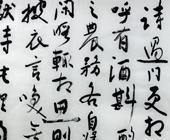 詩過門更相
呼有酒斟
之農務各自歸
閒暇輒相思則
披衣言笑